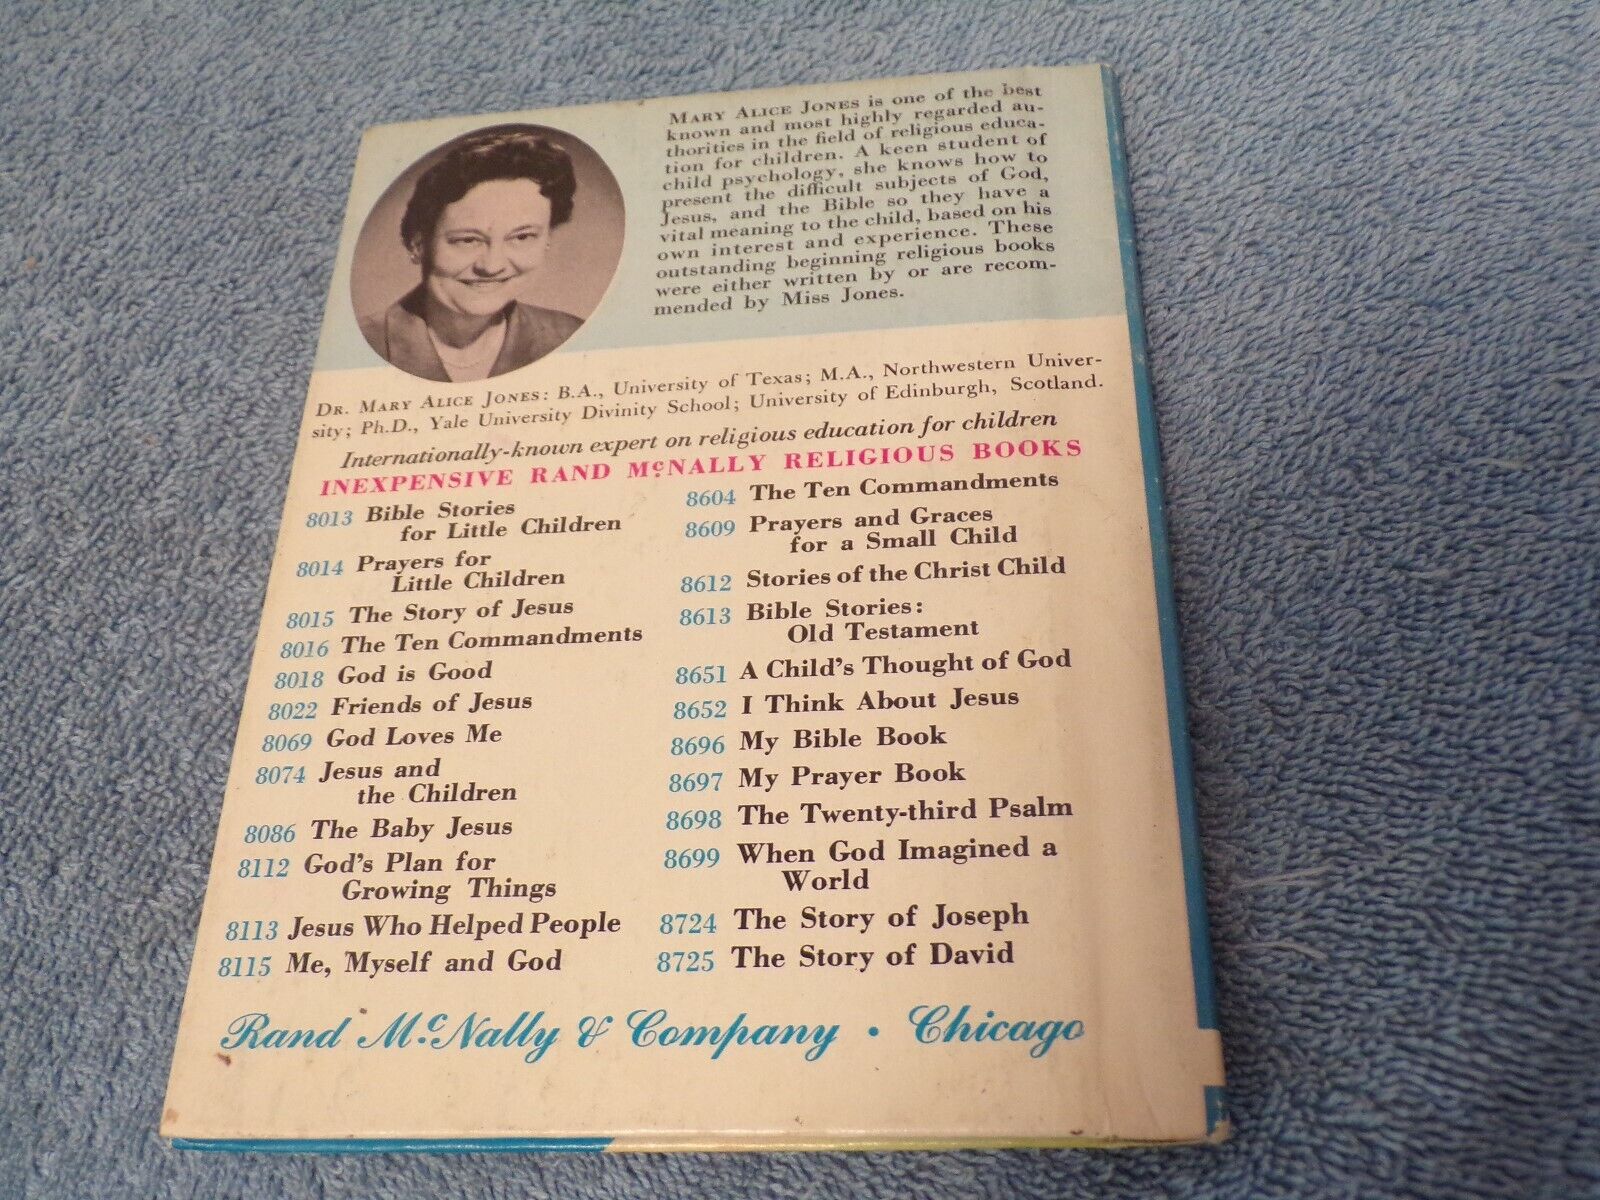 MARY ALICE JONES is one of the best
known and most highly regarded au-
thorities in the field of religious educa-
tion for children. A keen student of
child psychology, she knows how to
present the difficult subjects of God,
Jesus, and the Bible so they have a
vital meaning to the child, based on his
own interest and experience. These
outstanding beginning religious books
were either written by or are recom-
mended by Miss Jones.
DR. MARY ALICE JONES: B.A., University of Texas; M.A., Northwestern Univer-
sity; Ph.D., Yale University Divinity School; University of Edinburgh, Scotland.
Internationally-known expert on religious education for children
INEXPENSIVE RAND McNALLY RELIGIOUS BOOKS
8013 Bible Stories
for Little Children
8014 Prayers for
Little Children
8015 The Story of Jesus
8016 The Ten Commandments
8018 God is Good
8022 Friends of Jesus
8069 God Loves Me
8074 Jesus and
the Children
8086 The Baby Jesus
8112 God's Plan for
Growing Things
8113 Jesus Who Helped People
8115 Me, Myself and God
8604 The Ten Commandments
8609 Prayers and Graces
for a Small Child
8612 Stories of the Christ Child
8613 Bible Stories:
Old Testament
8651 A Child's Thought of God
8652 I Think About Jesus
8696 My Bible Book
8697 My Prayer Book
8698 The Twenty-third Psalm
8699 When God Imagined a
World
8724 The Story of Joseph
8725 The Story of David
Rand McNally & Company • Chicago